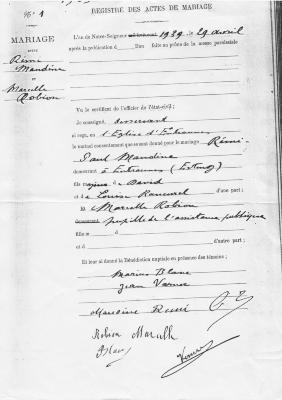 REGISTRE DES ACTES DE MARIAGE
N° 1
MARIAGE
ENTRE
Rémi
Mandine
et
Marcelle
Robion
L'an de Notre-Seigneur 1939 le 29 Avril
après la publication d Ban faite au prône de la messe paroissiale
Vu le certificat de l'officier de l'état-civil;
Je soussigné, desservant
ai reçu, en l'Eglise d'Entraunes
le mutuel consentement que se sont donné pour le mariage Rémi-
Paul Mandine
demeurant à Entraunes
fils majeur de David
et de Louise d'une part;
Et Marcelle Robion
demeurant pupille de l'assistance publique
fille m d
et d d'autre part;
Et leur ai donné la Bénédiction nuptiale en présence des témoins;
Marius Blanc
Jean
Mandine Rémi
Robion Marcelle
Blanc